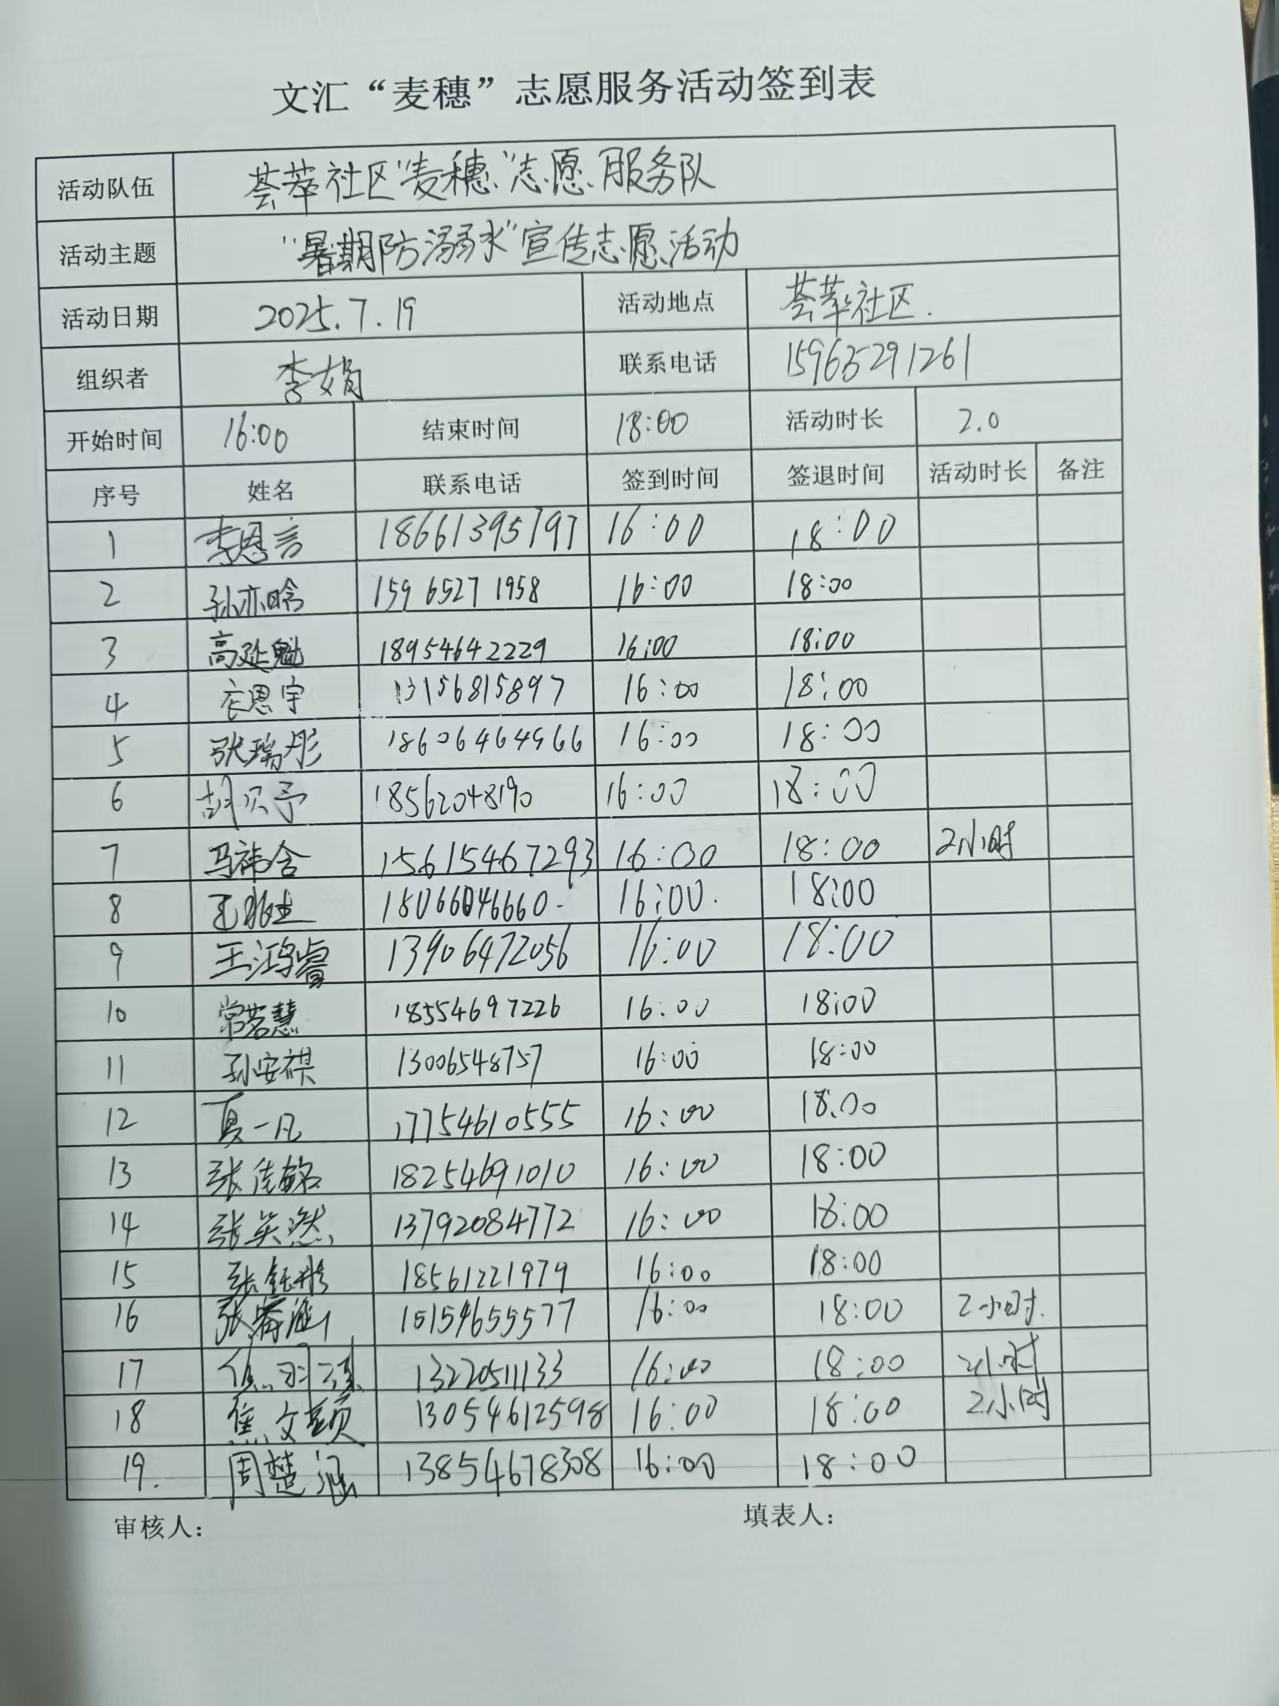 文汇“麦穗”志愿服务活动签到表
活动队伍 荟萃社区“麦穗”志愿服务队
活动主题 “暑期防溺水”宣传志愿活动
活动日期 2025.7.19 活动地点 荟萃社区.
组织者 李娟 联系电话 15965291261
开始时间 16:00 结束时间 18:00 活动时长 2.0
序号 姓名 联系电话 签到时间 签退时间 活动时长 备注
1 李恩言 18661395797 16:00 18:00
2 孙亦晗 15965271958 16:00 18:00
3 高延魁 18954642229 16:00 18:00
4 衣恩宇 13156815897 16:00 18:00
5 张瑞彤 18606464966 16:00 18:00
6 胡贝予 18562048190 16:00 18:00
7 马祎含 15615467293 16:00 18:00 2小时
8 16:00. 18:00
9 王鸿睿 13906472056 16:00 18:00
10 常若慧 18554697226 16:00 18:00
11 孙安祺 13006548757 16:00 18:00
12 夏一凡 17754610555 16:00 18:00
13 张佳铭 18254691010 16:00 18:00
14 张奕然 13792084772 16:00 18:00
15 张钰彤 18561221979 16:00 18:00
16 15154655577 16:00 18:00 2小时.
17 13220511133 16:00 18:00 2小时
18 焦文颐 13054612598 16:00 18:00 2小时
19. 周楚涵 13854678308 16:00 18:00
审核人: 填表人: